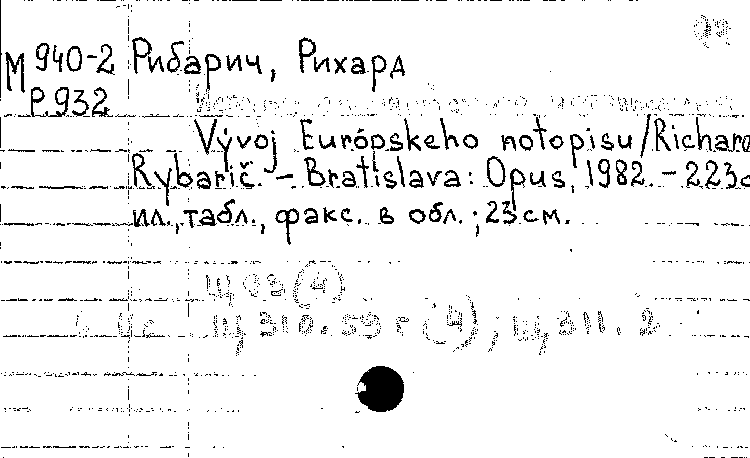 М 940-2 Рибарич, Рихард
Р.932
Vývoj Európskeho notopisu/Richard
Rybarič. – Bratislava: Opus, 1982. – 223с
ил., табл., факс. в обл.; 23см.
Щ 03(4)
Щ 310.59 г (4); Щ 311.2